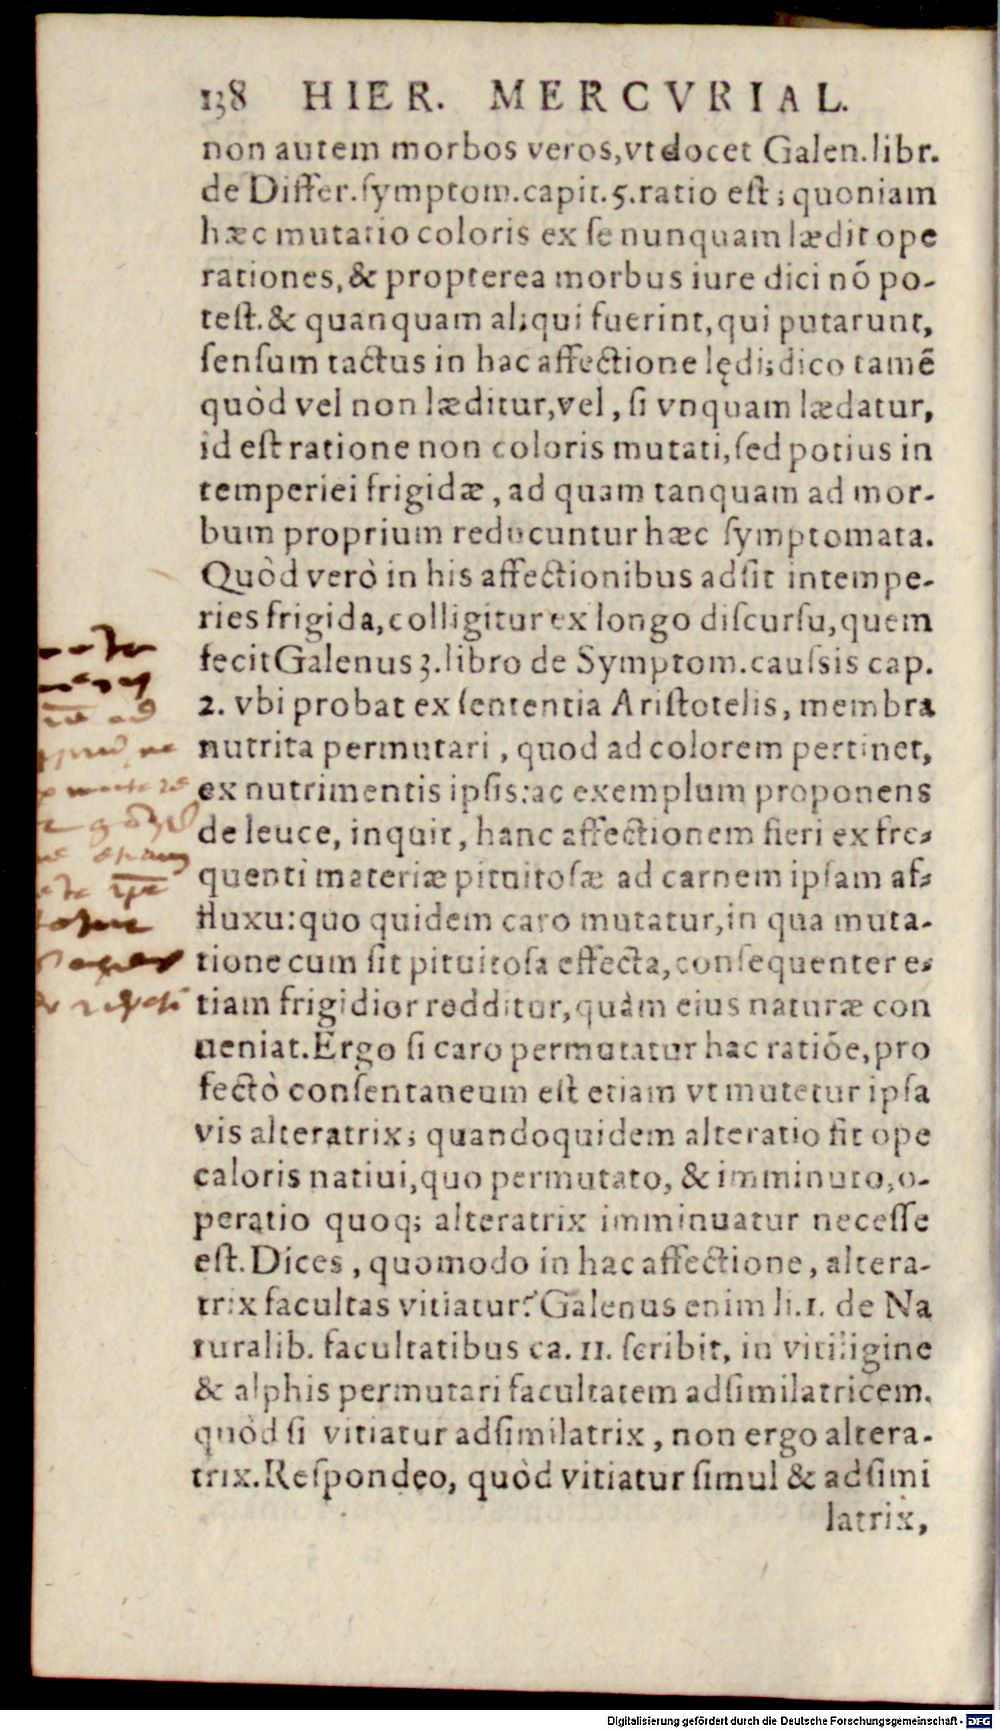 138 HIER. MERCVRIAL.
non autem morbos veros,vt docet Galen.libr.
de Differ.ſymptom.capit.5.ratio eſt; quoniam
hæc mutatio coloris ex ſe nunquam lædit ope
rationes, & propterea morbus iure dici nõ po-
teſt.& quanquam aliqui fuerint,qui putarunt,
ſenſum tactus in hac affectione lędi;dico tamẽ
quòd vel non læditur,vel , ſi vnquam lædatur,
id eſt ratione non coloris mutati,ſed potius in
temperiei frigidæ , ad quam tanquam ad mor-
bum proprium reducuntur hæc ſymptomata.
Quòd verò in his affectionibus adſit intempe-
ries frigida,colligitur ex longo diſcurſu,quem
fecit Galenus 3.libro de Symptom.cauſsis cap.
2. vbi probat ex ſententia Ariſtotelis, membra
nutrita permutari , quod ad colorem pertinet,
ex nutrimentis ipſis:ac exemplum proponens
de leuce, inquit, hanc affectionem fieri ex fre-
quenti materiæ pituitoſæ ad carnem ipſam af-
fluxu:quo quidem caro mutatur,in qua muta-
tione cum ſit pituitoſa effecta,conſequenter e-
tiam frigidior redditur,quàm eius naturæ con
ueniat.Ergo ſi caro permutatur hac ratiõe,pro
fectò conſentaneum eſt etiam vt mutetur ipſa
vis alteratrix; quandoquidem alteratio fit ope
caloris natiui,quo permutato, & imminuto,o-
peratio quoq; alteratrix imminuatur neceſſe
eſt.Dices , quomodo in hac affectione, altera-
trix facultas vitiatur? Galenus enim li.1. de Na
turalib. facultatibus ca. 11. ſcribit, in vitiligine
& alphis permutari facultatem adſimilatricem.
quòd ſi vitiatur adſimilatrix , non ergo altera-
trix.Reſpondeo, quòd vitiatur ſimul & adſimi
latrix,
Digitalisierung gefördert durch die Deutsche Forschungsgemeinschaft - DFG